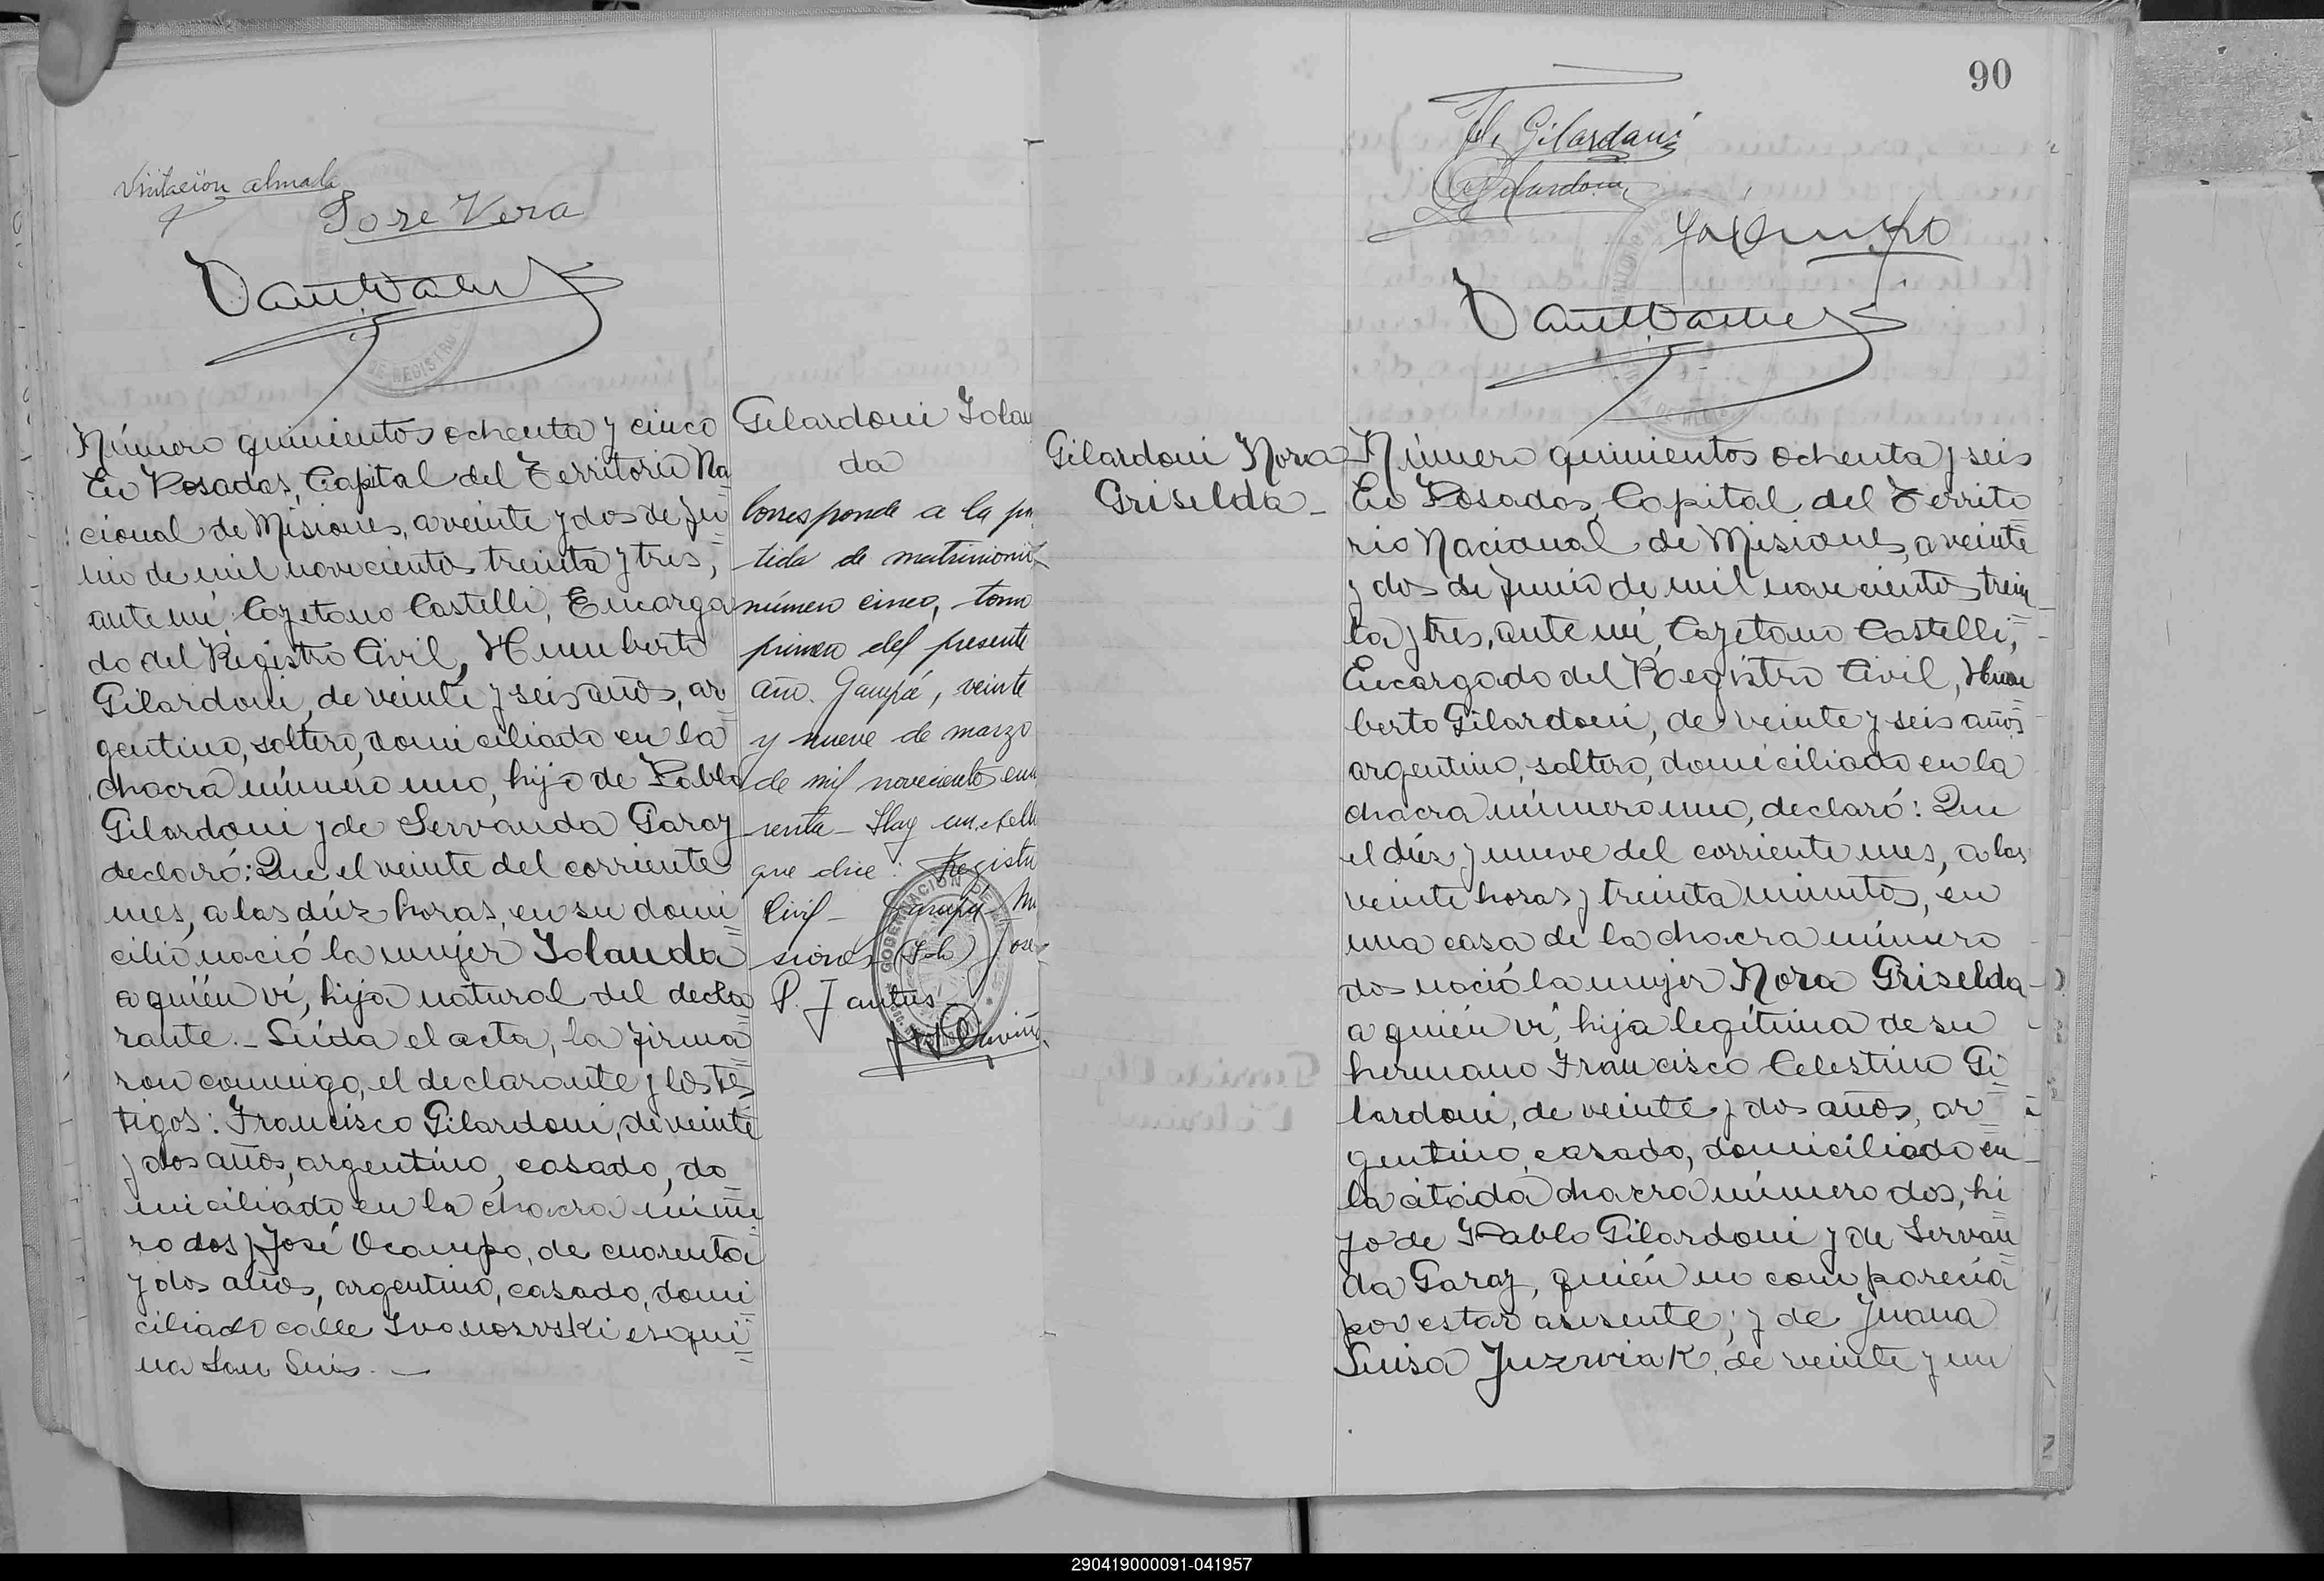 Visitación Almada
Jose Vera
Número quinientos ochenta y cinco
En Posadas, Capital del Territorio Na
cional de Misiones, a veinte y dos de Ju
nio de mil novecientos treinta y tres,
ante mí, Cayetano Castelli, Encarga
do del Registro Civil, Humberto
Gilardoni, de veinte y seis años, ar
gentino, soltero, domiciliado en la
chacra número uno, hijo de Pablo
Gilardoni y de Servanda Garay
declaró: Que el veinte del corriente
mes, a las diéz horas, en su domi
cilio nació la mujer Iolanda
a quién ví, hija natural del decla
rante.- Leída el acta, la firma
ron conmigo, el declarante y los tes
tigos: Francisco Gilardoni, de veinte
y dos años, argentino, casado, do
miciliado en la chacra núme
ro dos y José Ocampo, de cuarenta
y dos años, argentino, casado, domi
ciliado calle Ivonosvski esqui
na San Luis.-
Gilardoni Iolan
da
Corresponde a la par
tida de matrimonio
número cinco, tomo
primero del presente
año. Garupá, veinte
y nueve de marzo
de mil novecientos cua
renta - Hay un sello
que dice: Registro
Civil - Garupá - Mi
siones (Fdo) José
P. Jantus
GOBERNACION DE
90
Gilardoni
Gilardoni
Gilardoni Nora
Griselda -
Número quinientos ochenta y seis
En Posadas, Capital del Territo
rio Nacional de Misiones, a veinte
y dos de Junio de mil novecientos trein
ta y tres, ante mí, Cayetano Castelli,
Encargado del Registro Civil, Hum
berto Gilardoni, de veinte y seis años
argentino, soltero, domiciliado en la
chacra número uno, declaró: Que
el diéz y nueve del corriente mes, a las
veinte horas y treinta minutos, en
una casa de la chacra número
dos nació la mujer Nora Griselda
a quién ví, hija legítima de su
hermano Francisco Celestino Gi
lardoni, de veinte y dos años, ar
gentino, casado, domiciliado en
la citada chacra número dos, hi
jo de Pablo Gilardoni y de Servan
da Garay, quién no comparecía
por estar ausente; y de Juana
Luisa Juzwiak, de veinte y un
290419000091-041957